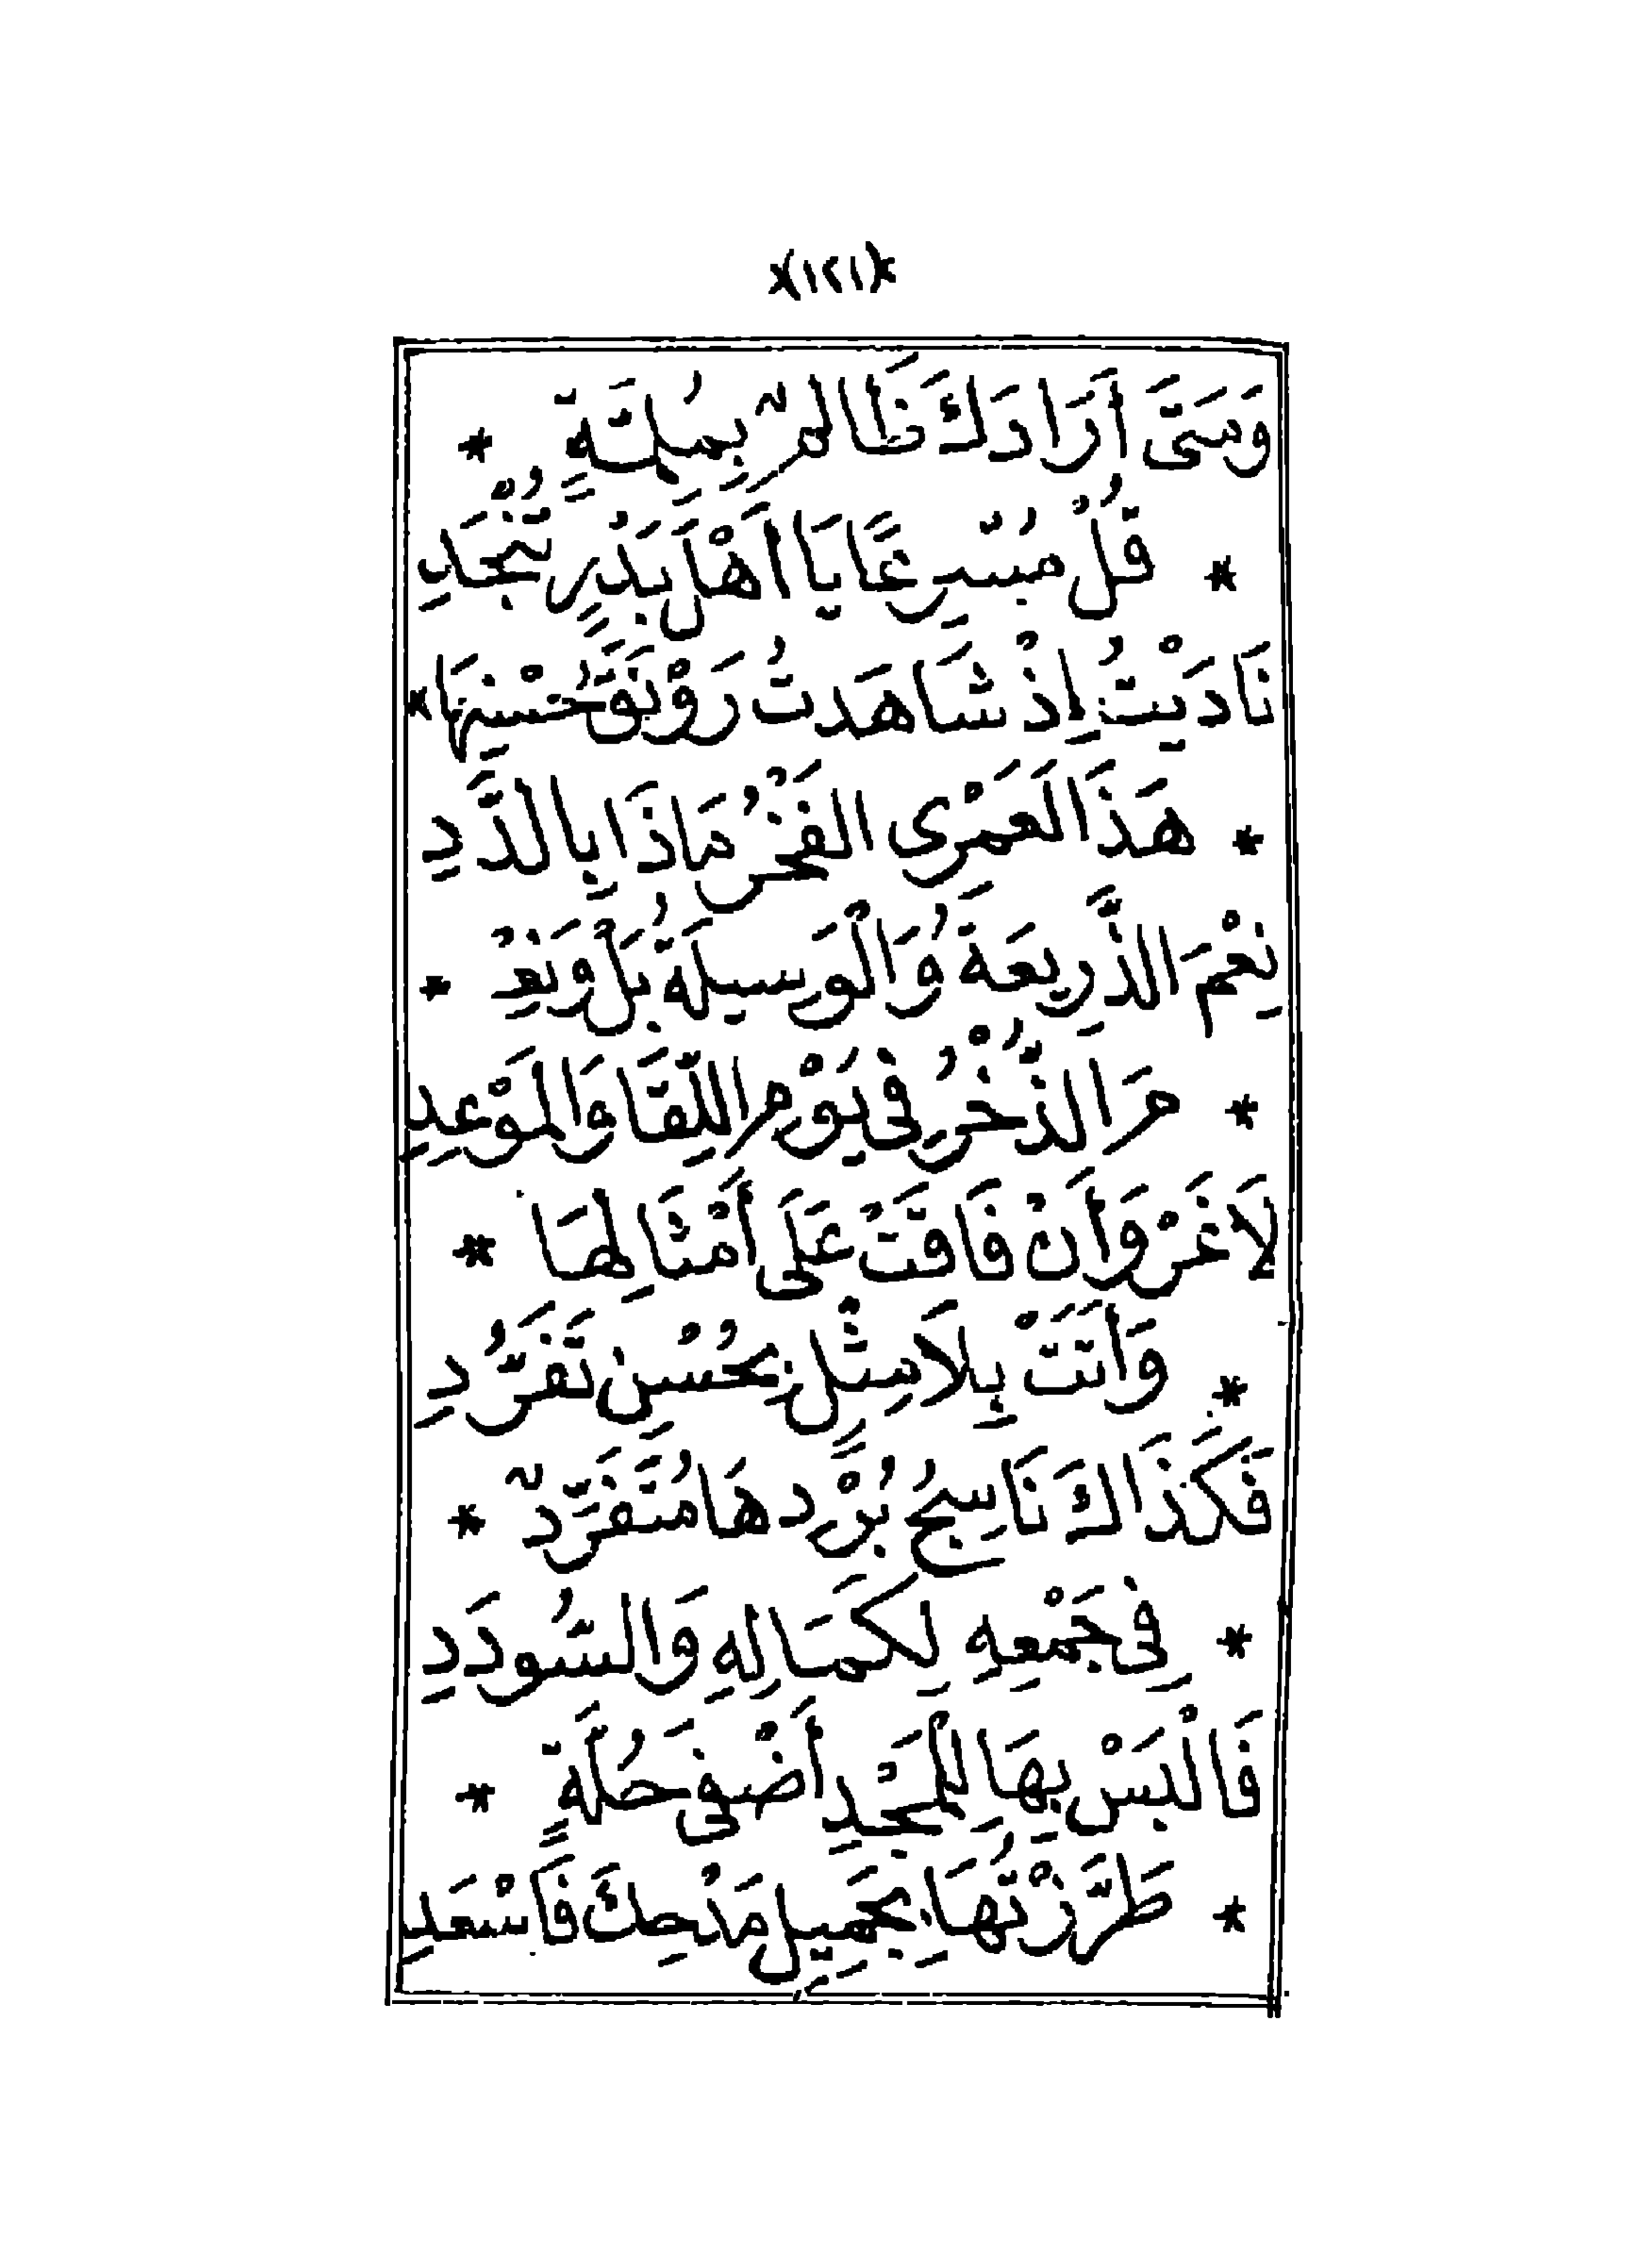 *(١٢١)*
وَمَتَى أَرَادَكَ ظَالِمٌ بِمُلِمَّةٍ *
* قُلْ مُسْرِعًا يَا اَهْلَ بَدْرٍ تُنْجَدِ
نَادَيْتُ إِذْ شَاهَدتُ رَوْنَقَ حُسْنِهَا *
* هَذَا لَعَمْرِى الفَخْرُ مَاذَا بِالدَّدِ
نِعْمَ الذَّرِيعَةُ وَالْوَسِيلَةُ بَلْ وَنِعْ *
* مَ الذُّخْرُ فِي يَوْمِ اللِّقَا وَالمَوْعِدِ
لَا غَرْوَ أَنْ فَاقَتْ عَلَى أَمْثَالِهَا *
* وَأَتَتْ بِلَا مِثْلٍ بِحُسْنِ تَفَرُّدِ
فَكَذَاكَ نَاسِجُ بُرْدِهَا مُتَفَرِّدٌ *
* فِي جَمْعِهِ لِكَمَالِهِ وَالسُّودَدِ
فَالْبَسْ بِهَا لِلْمَجْدِ أَضْفَى حُلَّةٍ *
* طَرَّزْتُهَا بِجَمِيلِ مَدْحِكَ فَاسْعَدِ